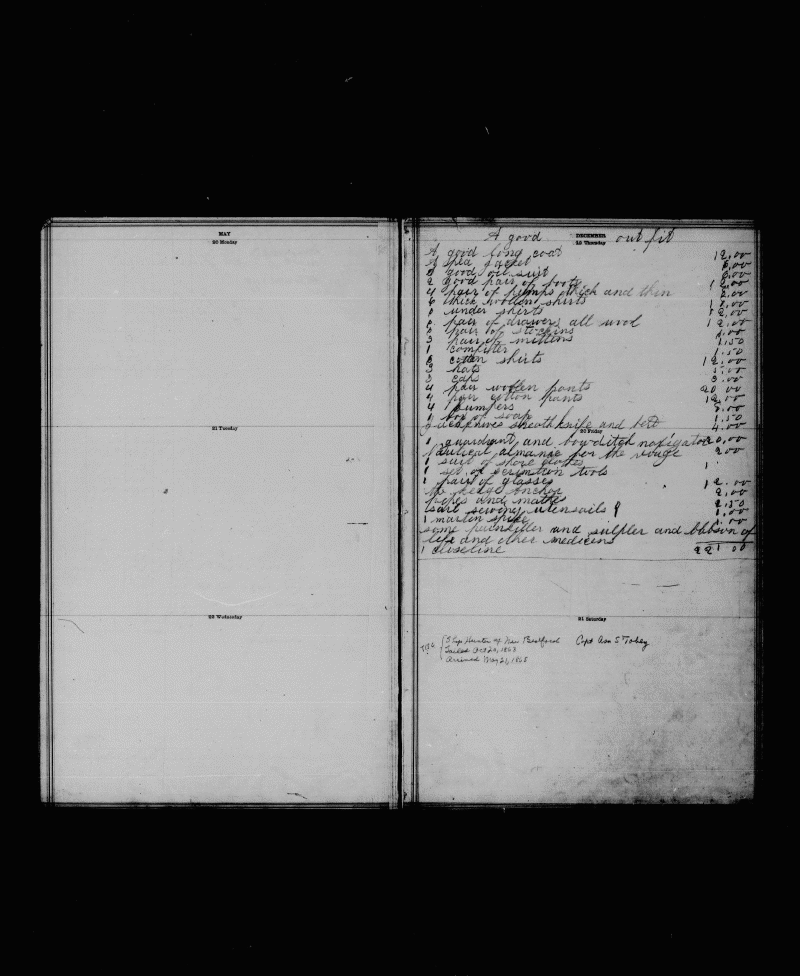 MAY
20 Monday
21 Tuesday
22 Wednesday
A good DECEMBER out fit
19 Thursday
A good long coat 12.00
A pea jacket 8.00
A good oil suit 6.00
2 good pair of boots
4 pair of pumps thick and thin 8.00
6 thick woollen shirts
under shirts 12.00
pair of drawers all wool 12.00
pair of stockins
3 pair of mittens 1.50
1 comforter 1.50
cotten shirts 12.00
3 hats
3 caps 3.00
4 pair woolen pants 20.00
4 pair cotton pants 12.00
4 jumpers
1 box of soap 1.50
knives sheath knife and belt 4.00
20 Friday
1 quardrant and bowditch navigator
Nautical almanic for the voige 2.00
1 suit of shore cloths
1 set of scrimtion tools 1
1 pair of glasses 12.00
kedge anchor 2.00
pipes and matches 2.50
sart sewing utensails
1 marlin spike
some painkiller and sulpher and balson of
life and other medicens
1 closeline 221 00
21 Saturday
Ship Hunter of New Bedford Capt Asa S Tobey
Sailed Oct 20, 1862
Arrived May 21, 1865